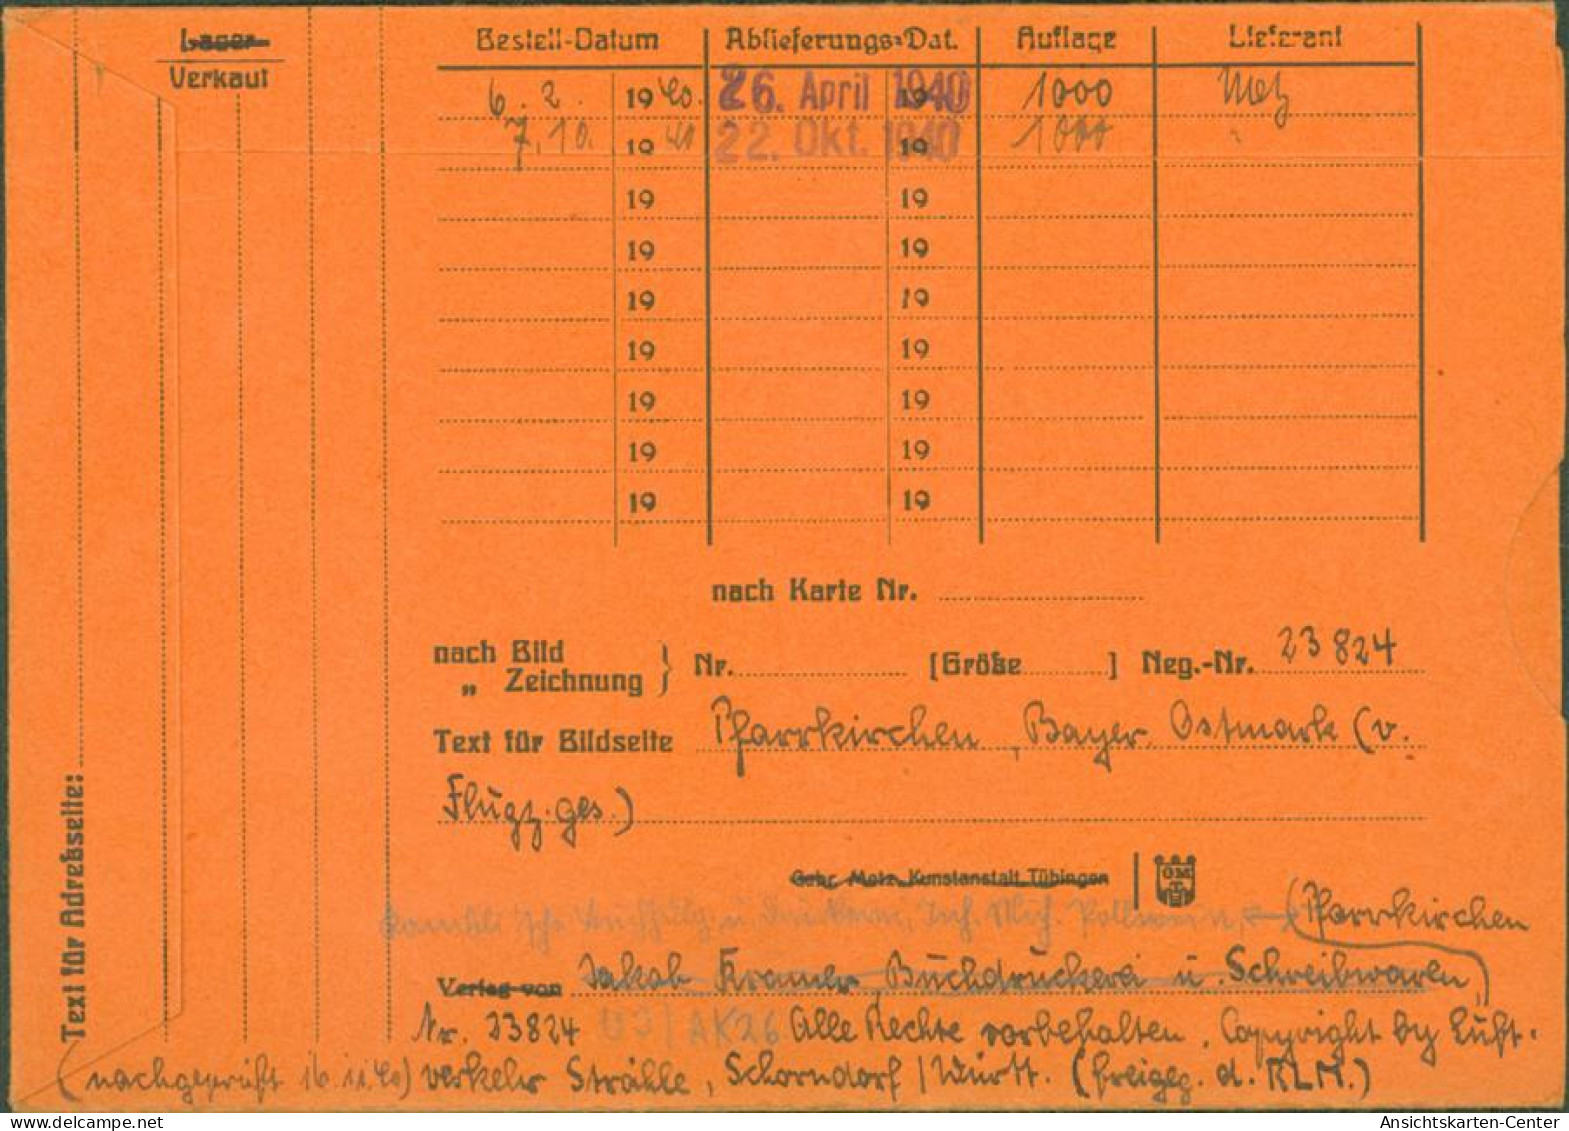 Lager
Verkauf
Bestell-Datum Ablieferungs-Dat. Auflage Lieferant
6. 2. 1940. 26. April 1940 19 1000 Metz
7. 10. 1940 22. Okt. 1940 19 1000
19 19
19 19
19 19
19 19
19 19
19 19
19 19
nach Karte Nr.
nach Bild
„ Zeichnung } Nr. [Größe ] Neg.-Nr. 23824
Text für Bildseite Pfarrkirchen, Bayer. Ostmark (v.
Flugz. ges.)
Gebr. Metz, Kunstanstalt Tübingen
GM
T
Pfarrkirchen
Verlag von Jakob Kramer Buchdruckerei u. Schreibwaren,
Nr. 23824 AK26 Alle Rechte vorbehalten. Copyright by Luft-
(nachgeprüft 16.11.40) verkehr Strähle, Schorndorf/Württ. (freigeg. d. RLM.)
Text für Adreßseite:
www.delcampe.net
Ansichtskarten-Center